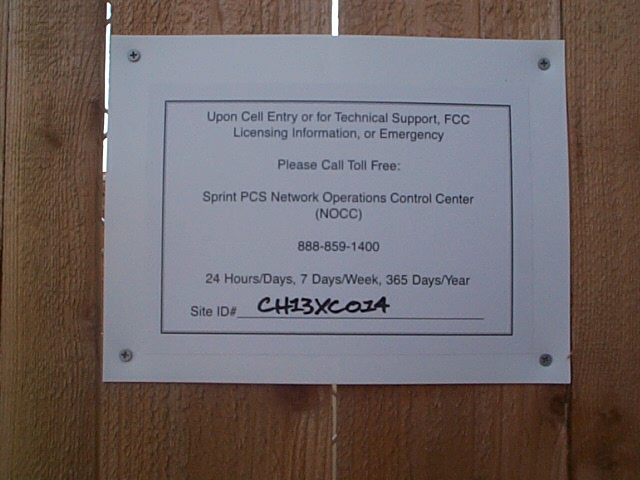 Upon Cell Entry or for Technical Support, FCC
Licensing Information, or Emergency
Please Call Toll Free:
Sprint PCS Network Operations Control Center
(NOCC)
888-859-1400
24 Hours/Days, 7 Days/Week, 365 Days/Year
Site ID# CH13XC014